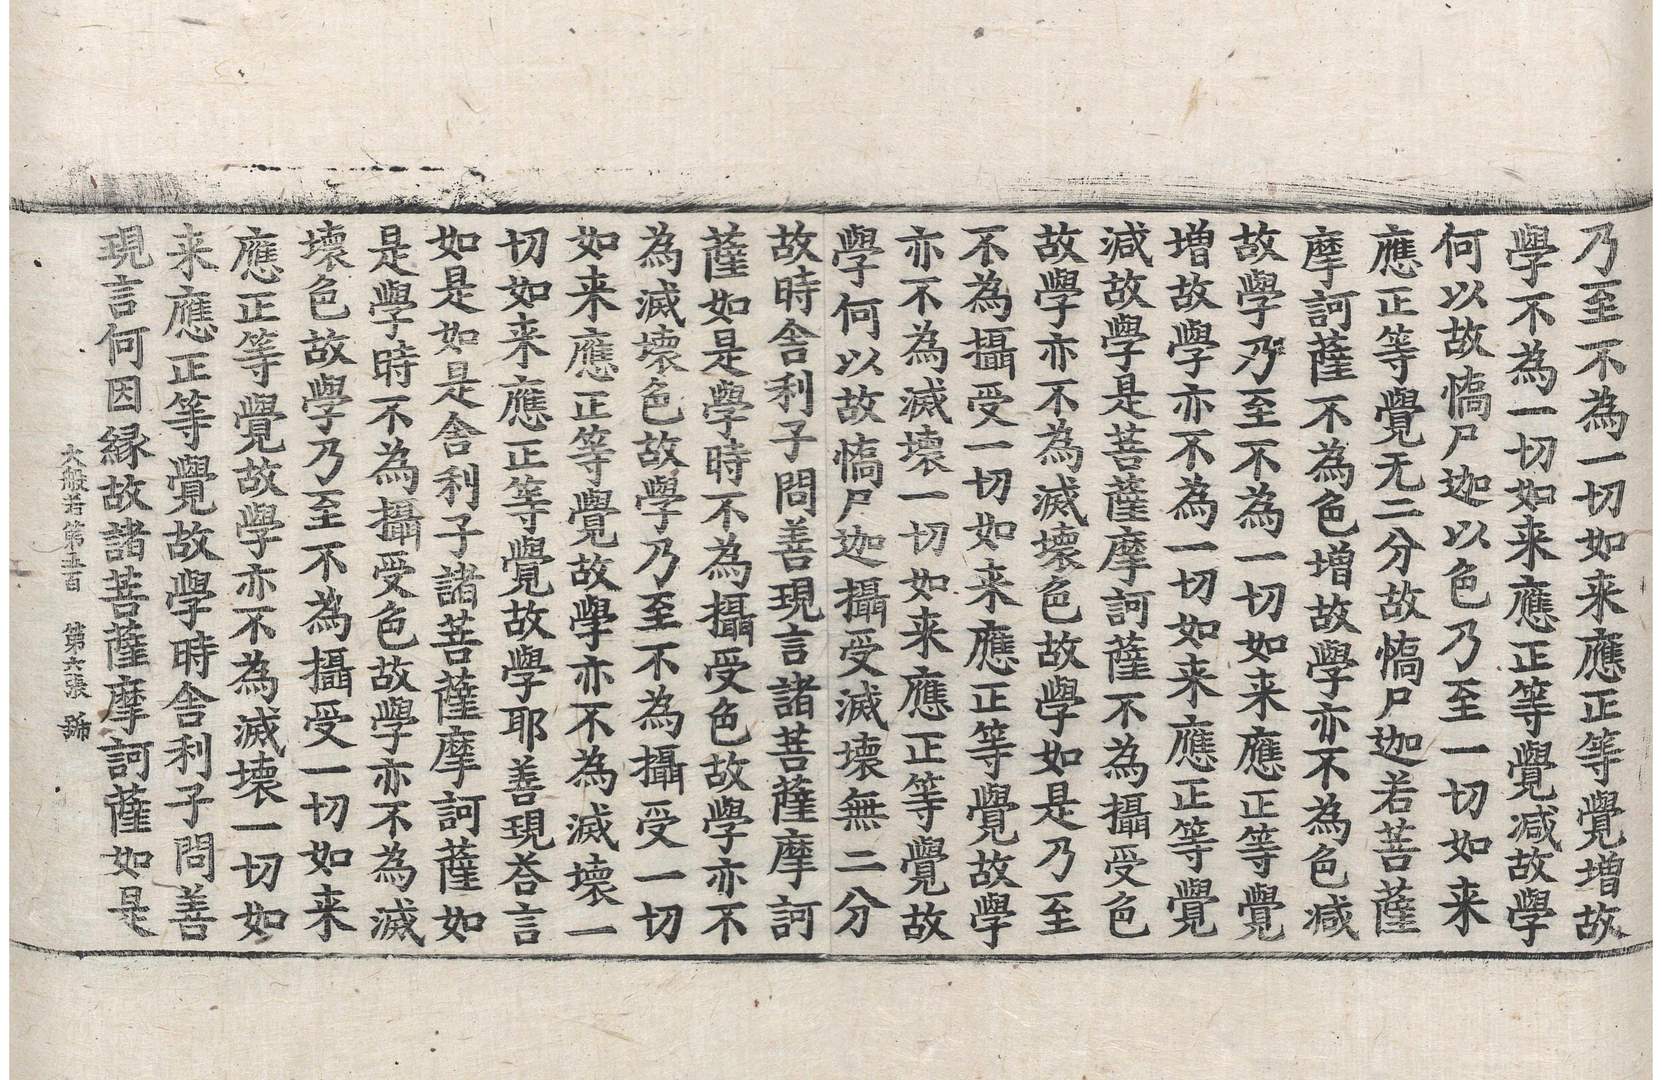 乃至不為一切如来應正等覺增故
學不為一切如来應正等覺減故學
何以故憍尸迦以色乃至一切如来
應正等覺无二分故憍尸迦若菩薩
摩訶薩不為色增故學亦不為色減
故學乃至不為一切如来應正等覺
增故學亦不為一切如来應正等覺
減故學是菩薩摩訶薩不為攝受色
故學亦不為滅壞色故學如是乃至
不為攝受一切如来應正等覺故學
亦不為滅壞一切如来應正等覺故
學何以故憍尸迦攝受滅壞無二分
故時舍利子問善現言諸菩薩摩訶
薩如是學時不為攝受色故學亦不
為滅壞色故學乃至不為攝受一切
如来應正等覺故學亦不為滅壞一
切如来應正等覺故學耶善現荅言
如是如是舍利子諸菩薩摩訶薩如
是學時不為攝受色故學亦不為滅
壞色故學乃至不為攝受一切如来
應正等覺故學亦不為滅壞一切如
来應正等覺故學時舍利子問善
現言何因縁故諸菩薩摩訶薩如是
大般若第五百 第六張